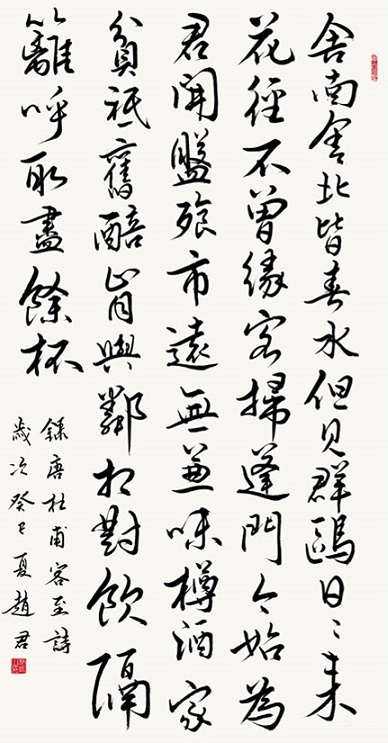 舍南舍北皆春水但見群鷗日〻来
花徑不曾緣客掃蓬門今始為
君開盤飱市遠無兼味樽酒家
貧祗舊醅肯與鄰相對飲隔
籬呼取盡餘杯
録唐杜甫客至詩
歲次癸巳夏趙君